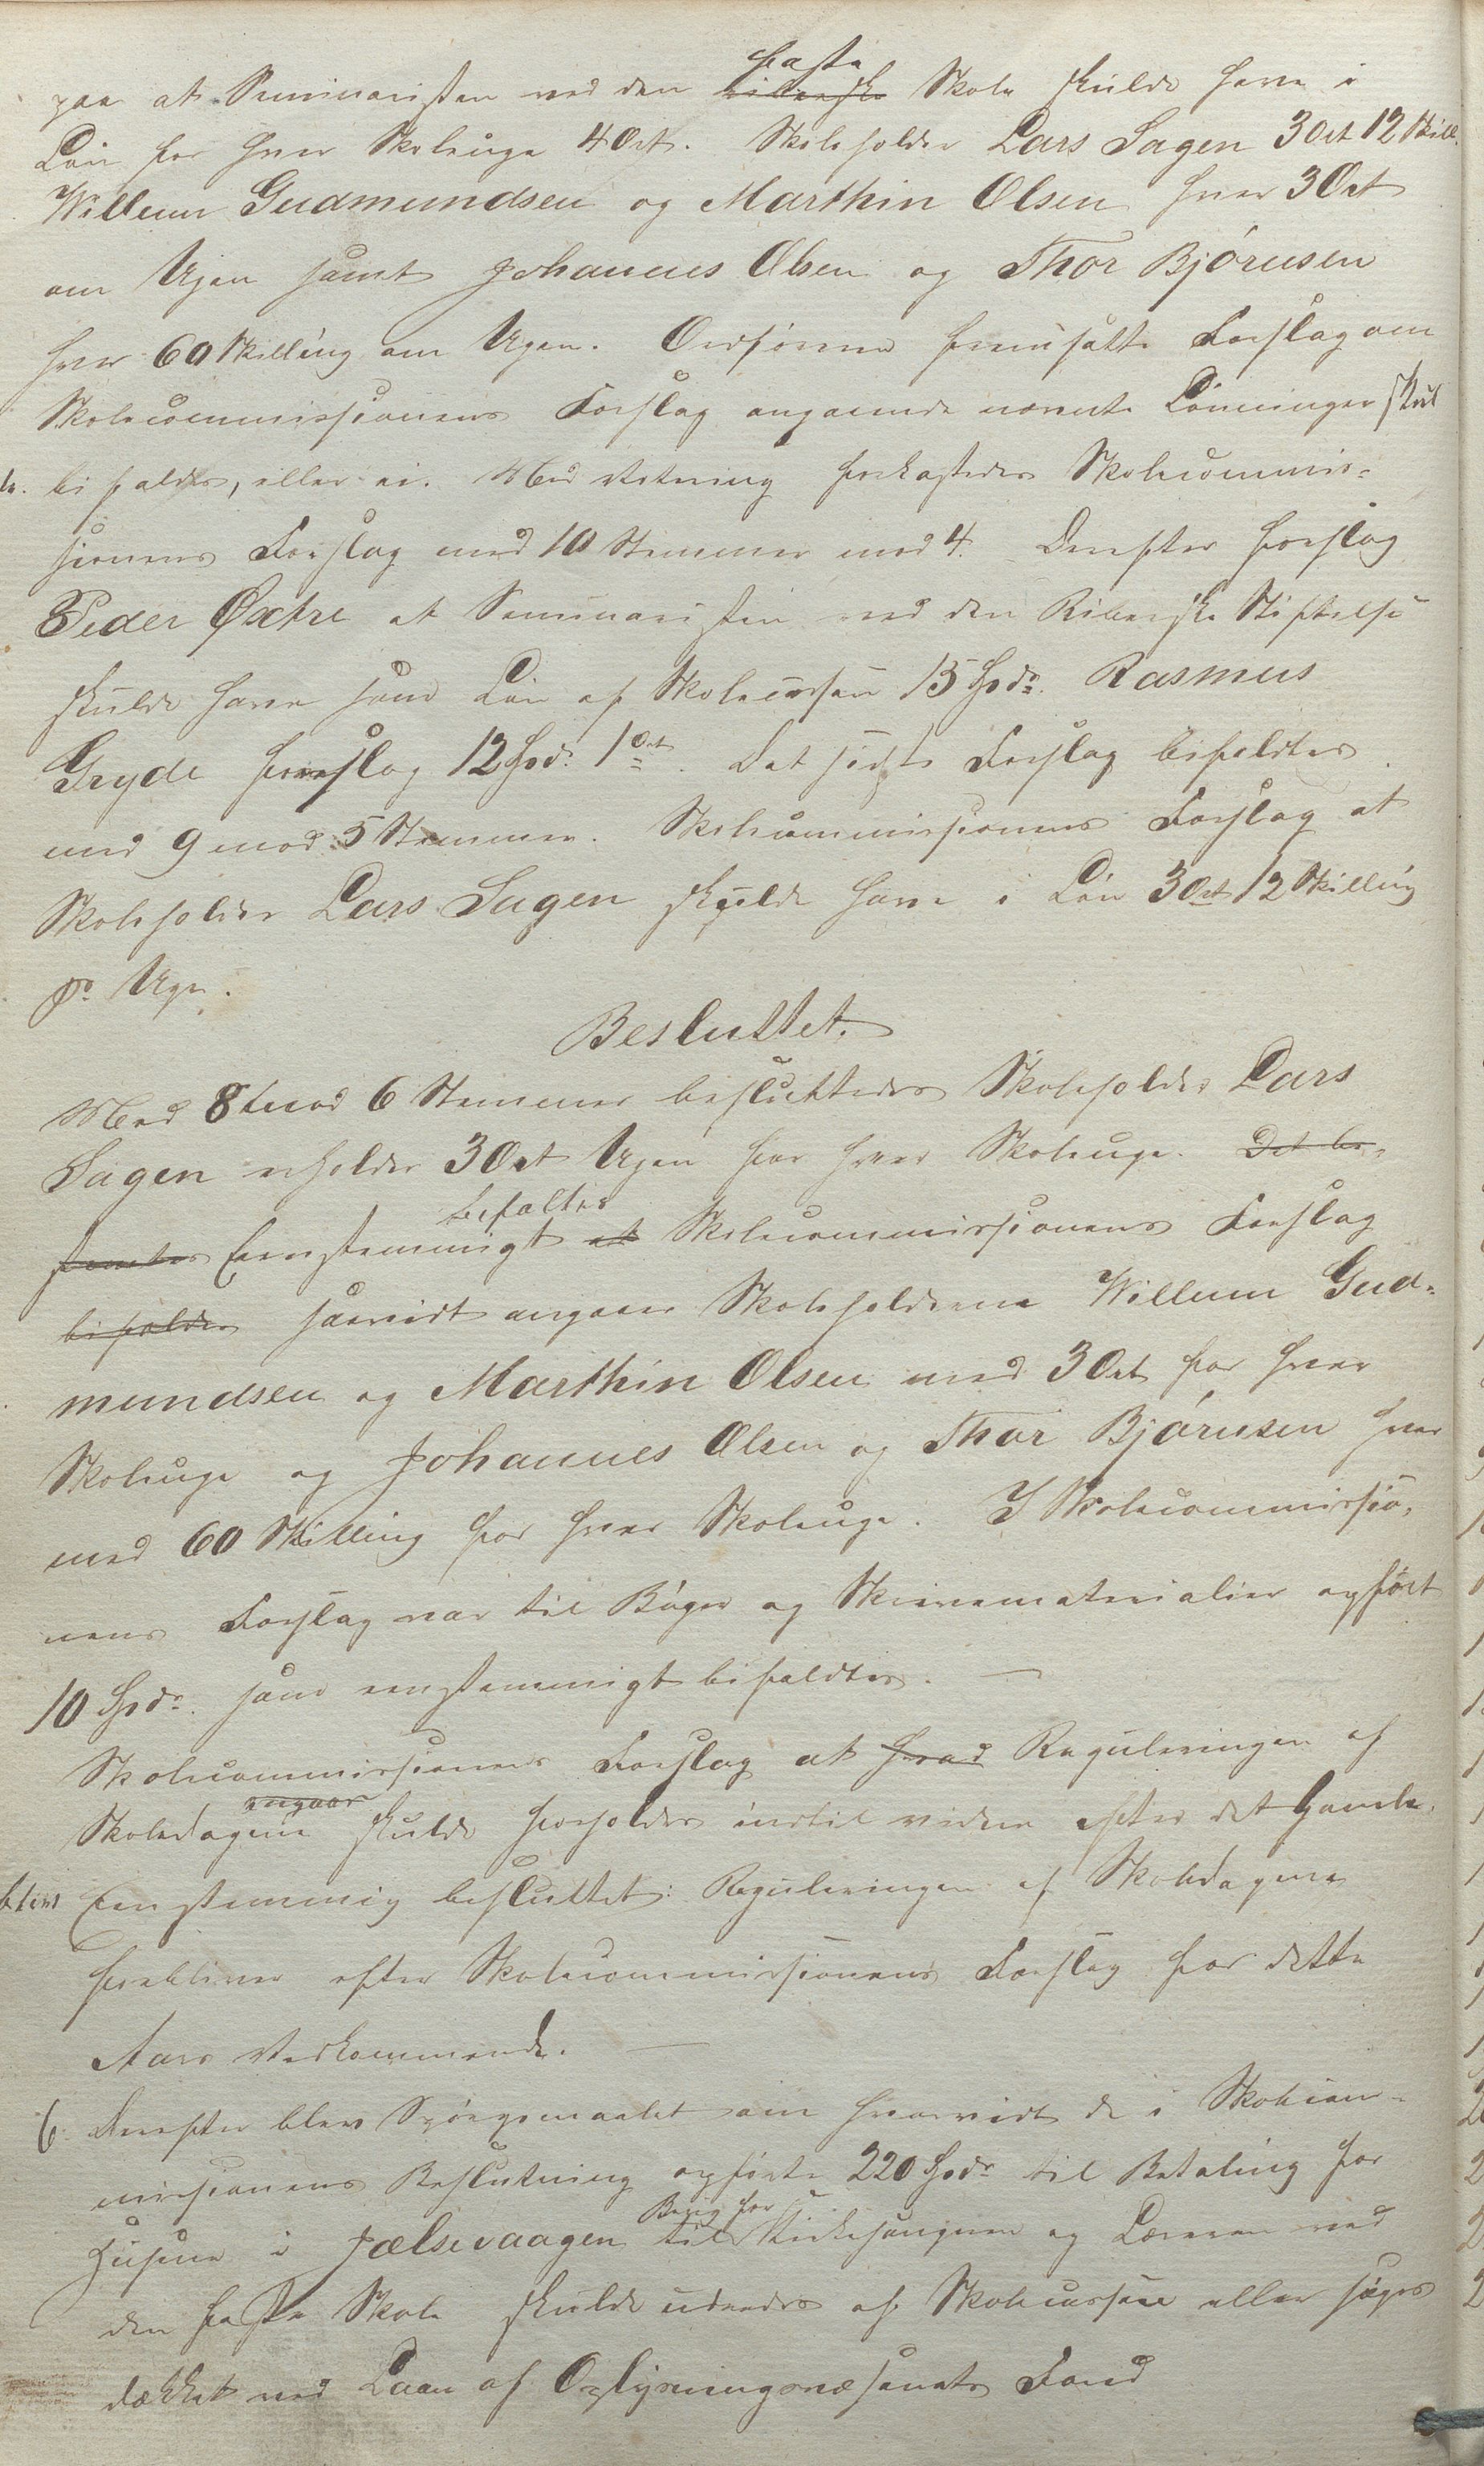 faste
paa at Seminaristen ved den riberske Skole skulde have i
Løn for hver Skoleuge 4 Ort. Skoleholder Lars Sagen 3 Ort 12 Skill.
Willum Gudmundsen og Marthin Olsen hver 3 Ort
om Ugen samt Johannes Olsen og Thor Bjørnsen
hver 60 Skilling om Ugen. Ordføreren fremsatte Forslag om
Skolecommissionens Forslag angaaende nævnte Lønninger skul
de. bifaldes, eller ei. Med Votering forkastedes Skolecommis-
sionens Forslag med 10 Stemmer mod 4. Derefter foreslog
Peder Øxtre at Seminaristen ved den Riberske Stiftelse
skulde have som Løn af Skolecassen 15 Spdr. Rasmus
Gryde foreslog 12 Spd. 1 Ort. Det sidste Forslag bifaldtes
med 9 mod 5 Stemmer. Skolecommissionens Forslag at
Skoleholder Lars Sagen skulde have i Løn 3 Ort 12 Skilling
pr Uge.
Besluttet.
Med 8 mod 6 Stemmer besluttedes Skoleholder Lars
Sagen erholder 3 Ort Ugen for hver Skoleuge. Det be-
bifaltes
stemtes Eenstemmigt at Skolecommissionens Forslag
bifaldes saavidt angaaer Skoleholderne Willum Gud-
mundsen og Marthin Olsen med 3 Ort for hver
Skoleuge og Johannes Olsen og Thor Bjørnsen hver
med 60 Skilling for hver Skoleuge. I Skolecommissio-
nens Forslag var til Bøger og Skrivematerialier opført
10 Spdr. som eenstemmigt bifaldtes.
Skolecommissionens Forslag at hvad Reguleringen af
angaar
Skoledagene skulde forholdes indtil videre efter det Gamle.
Eenstemmig besluttet: Reguleringen af Skoledagene
forebliver efter Skolecommissionens Forslag for dette
Aars Vedkommende.
6. Derefter blev Spørgsmaalet om hvorvidt de i Skolecom-
missionens Beslutning opførte 220 Spdr til Betaling for
Husene i Jælsevaagen til Kirkesangeren og Læreren ved
den faste Skole skulde udredes af Skolecassen eller søges
dækket ved Laan af Oplysningsvæsenets Fond